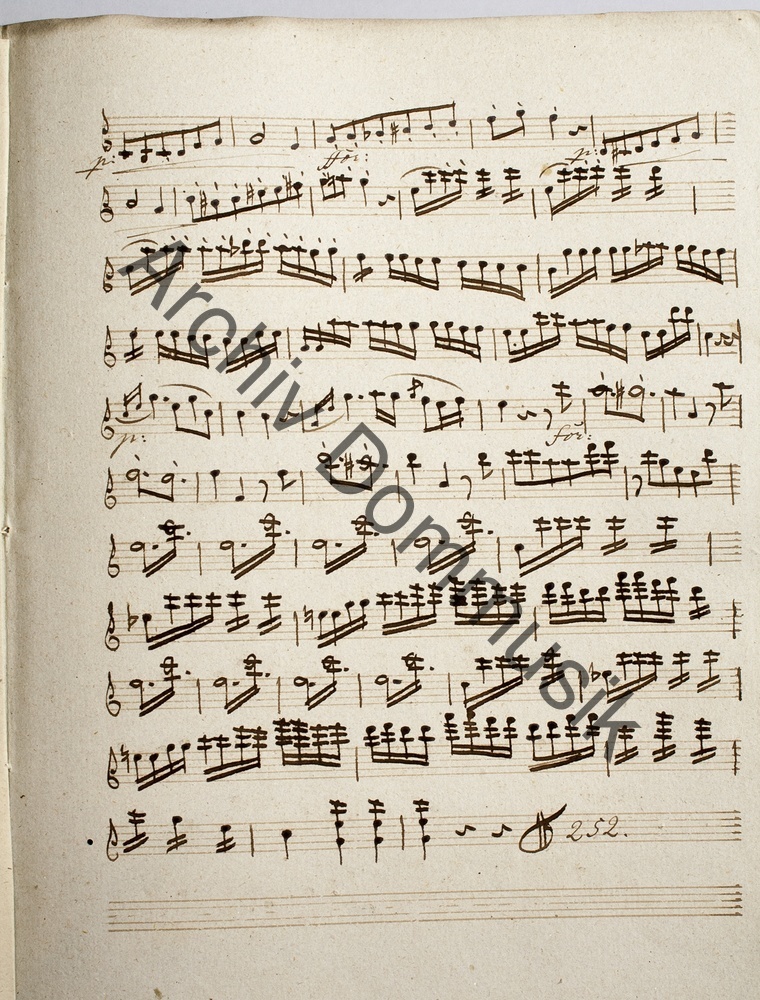 p:
for:
p:
p:
for:
252.
Archiv Dommusik